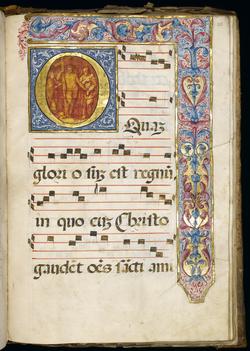 O Quaʒ
glori o suʒ est regnū
in quo cuʒ Christo
gaudēt oēs sācti ami